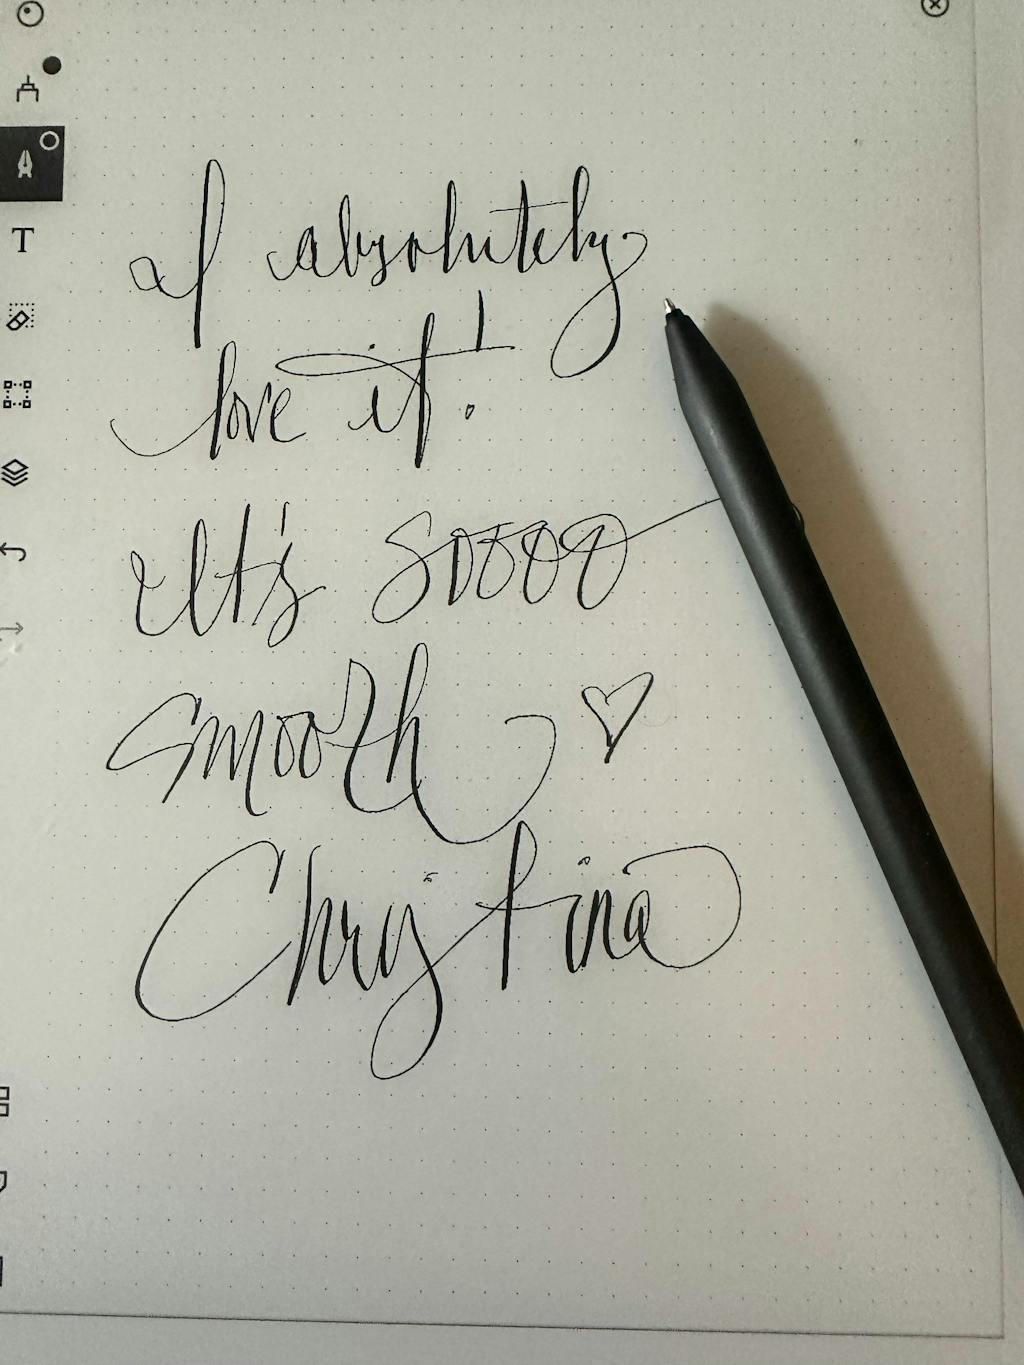 T
I absolutely
love it!
It's soooo
smooth ♡
Christina